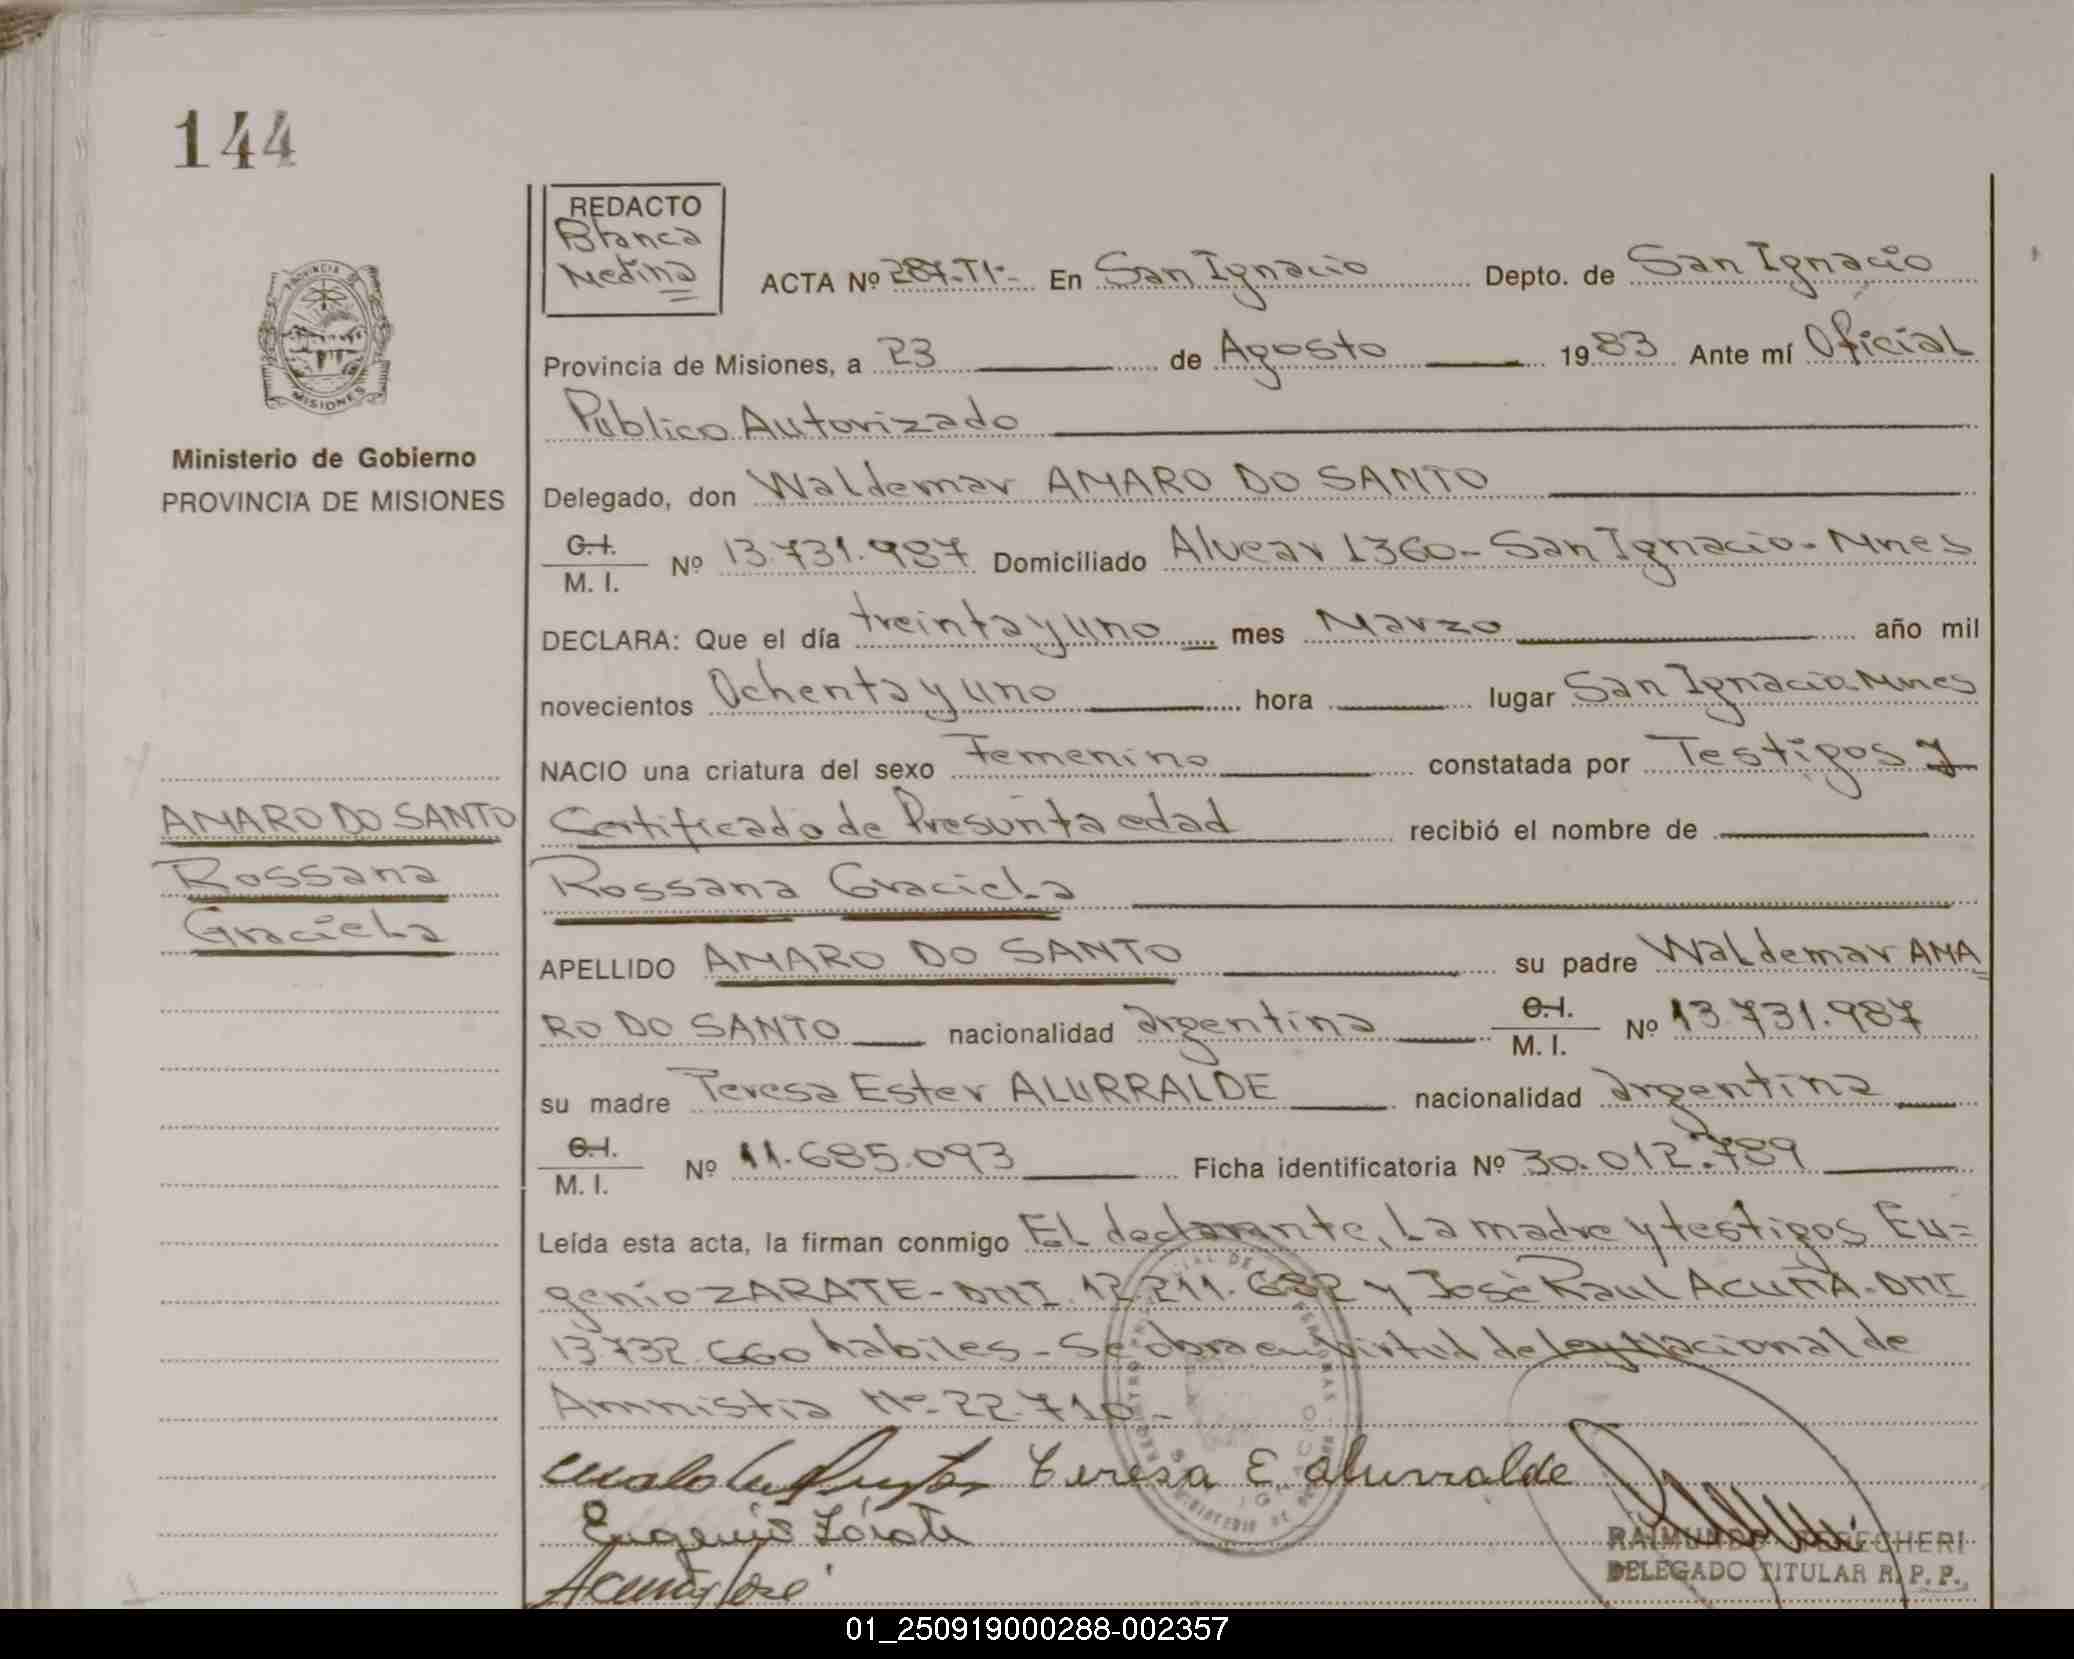 144
REDACTO
Blanca
Medina
ACTA Nº 287-TI- En San Ignacio Depto. de San Ignacio
Provincia de Misiones, a 23 de Agosto 1983 Ante mí Oficial
Publico Autorizado
Ministerio de Gobierno
PROVINCIA DE MISIONES
Delegado, don Waldemar AMARO DO SANTO
C.I.
M. I. Nº 13.731.987 Domiciliado Alvear 1360-San Ignacio-Mnes
DECLARA: Que el día treinta y uno mes Marzo año mil
novecientos Ochenta y uno hora lugar San Ignacio-Mnes
NACIO una criatura del sexo Femenino constatada por Testigos y
AMARO DO SANTO
Rossana
Graciela
Certificado de Presunta edad recibió el nombre de
Rossana Graciela
APELLIDO AMARO DO SANTO su padre Waldemar AMA
RO DO SANTO nacionalidad argentina C.I. M. I. Nº 13.731.987
su madre Teresa Ester ALURRALDE nacionalidad argentina
C.I.
M. I. Nº 11.685.093 Ficha identificatoria Nº 30.012.789
Leída esta acta, la firman conmigo El declarante, La madre y testigos Eu=
genio ZARATE-DNI.12.211.682 y José Raul ACUÑA-DNI
13.732.660 habiles-Se obra en virtud de ley Nacional de
Amnistia Nº-22.710-
Teresa E Alurralde
Eugenio Zárate
Acuña José
RAIMUNDO
DELEGADO TITULAR R. P. P.
01_250919000288-002357